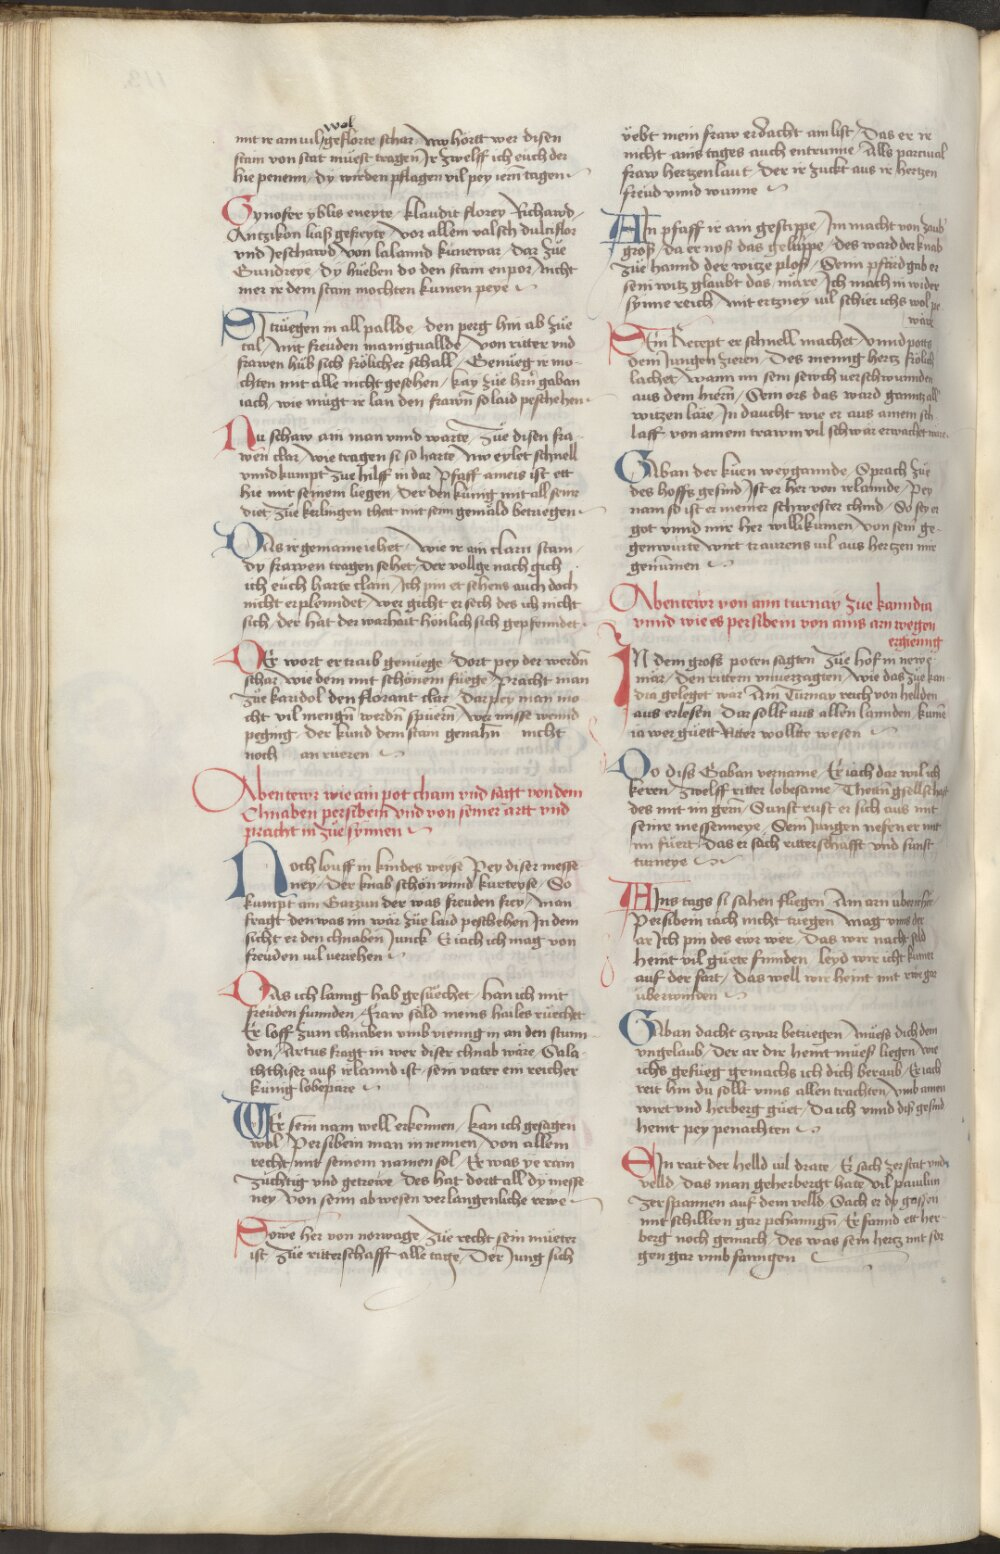 wol
mit ir am vil geflorte schar / Nw hörtt wer disen
stam von stat müest tragen Ir zwelff ich euch der
hie penenn / dy wirden pflagen vil pey iern tagen
Gynofer yblis eneyte / klaudit florey Richawd /
Antzikon liaß gefreyte / vor allem valsch dulciflor
vnd Jeschawd / von lalannd künewar / Dar züe
Gundreye / dy hüeben do den stam enpor / Nicht
mer ir dem stam mochten kumen peye
Si trüegen in all pallde / den perg hin ab züe
tal / Mit freuden mainguallde / von ritter vnd
frawen hüb sich frölicher schall / Genüeg ir mo¬
chten mit alle nicht gesehen / kay züe hrn gaban
iach / wie mügt ir lan den frawn so laid peschehen
Nu schaw ain man vnnd warte / züe disen fra¬
wen clar / wie tragen si so harte / Nw eylet schnell
vnnd kumpt züe hilff in dar / Pfaff ameis ist ett
hie mit seinem liegen / der den künig mit all seinr
diet / züe kerlingen thett mit seim gemäld betriegen
Das ir gemaine iehet / wie ir ain clarn stam /
dy frawen tragen sehet / der vollge nach gich
ich euch harte clain / Ich pin et sehens auch doch
nicht erplenndet / wer gicht er sech des ich nicht
sich / der hat der warhait hönlich sich gepfenndet
Der wort er traib genüege / Dort pey der werdn
schar / wie dem mit schönem füege / Pracht man
züe karidol den florant clar / Dar pey man mo
cht vil mengn werdn spuern / wer misse wennd
peging / Der kund dem stam genahn nicht
noch an rueren
Abentewr wie ain pot cham vnd sagt von dem
Chnaben persibein vnd von seiner artt vnd
pracht in züe synnen
Noch louff in kindes weyse / Pey diser messe
ney / Der knab schön vnnd kurteyse / So
kumpt ain Garzun der was freuden frey / Man
fragt den was im wär züe laid peschehen In dem
sicht er den chnaben Junck / Er iach ich mag von
freuden vil veriehen
Das ich lanng hab gesüechet / han ich mit
freuden funnden / Fraw säld meins hailes rüechet
Er loff zum chnaben vmb vienng in an den stunn
den / Artus fragt in wer diser chnab wäre / Sala
ththiser auß irlannd ist / sein vater ein reicher
künig lobepäre
Wer sein nam well erkennen / kan ich gesagen
wol / Persibein man in nennen / von allem
recht mit seinem namen sol / Er was ye rain
züchtig vnd getrewe / Des hat dortt all dy messe
ney von seim ab wesen verlangenliche rewe
Sowe her von norwage / züe recht sein müeter
ist / züe ritterschafft alle tage / Der Jung sich
vebt mein fraw erdacht am list / Das er ir
nicht ains tages auch entrunne / Alls parcival
fraw hertzenlaut / Der ir zuckt aus ir hertzen
freud vnnd wunne
Ain pfaff ir ain gestippe / Im macht von zaub
groß / da er noß das geluppe / des ward der knab
züe hannd der witze ploß / Seim pfärd gab er
sein witz glaubt das märe / Ich mach in wider
synne reich / mit ertzney vil schier ichs wol pe
wäre
Sein Recept er schnell machet / Vnnd potts
dem Jungen zieren / Des menng hertz frölich
lachet / Wann im sein sewch verschwunnden
aus dem hiern / Sein ors das ward ganntz all
witzen läre / In daucht wie er aus ainem sch
laff von ainem trawm vil schwär erwachet wäre
Gaban der küen weygannde / Sprach züe
des hoffs gesind / Ist er her von irlannde / Pey
nam so ist er meiner schwester chind / So sey er
got vnnd mir her willikumen / von seim ge¬
genwurte wirt traurens vil aus hertzen mir
genumen
Abentewr von aim turnay züe kanndia
vnnd wie es persibein von ains arn wegen
ergienng
In dem groß poten sagten züe hof in newe
mär / Den rittern vnuerzagten / Wie das züe kan
dia geleget war / Ain Turnay reich von hellden
aus erlesen / Dar sollt aus allen lannden / kume
ia wer guett Ritter wollte wesen
Do diß Gaban vername / Er iach dar wil ich
keren / zwelff ritter lobesame / Theun gsellschafft
des mit im gern / Sunst rust er sich aus mit
seiner messenneye / Sein Jungen nefen er mit
im füert / Das er säch ritterschafft vnd sunst
turneye
Ains tags si sahen fliegen / Ain arn über sich
Persibein iach nicht triegen / Mag vnns der
ar Ich pin des ewr wer / Das wir nacht seld
heint vil güete funnden / leyd wir icht kumer
auf der fart / Das well wir heint mit rwe gar
überwinden
Gaban dacht zwar betriegen / Müess dich dein
vngelaub / Der ar dir heint müeß liegen / Wie
ichs gefüeg gemachs ich dich beraub / Er iach
reit hin du sollt vnns allen trachten / vmb ainen
wirt vnd herberg güet / Da ich vnnd diß gesind
heint pey penachten
Hin rait der helld vil drate / Er sach zer stat vnd
velld / Das man geherbergt hate / vil paulun
zerspannen auf dem velld / Sach er dy gassen
mit schillten gar pehanngn / Er fannd ett her¬
berg noch gemach / Des was sein hertz mit sor
gen gar vmb fanngen